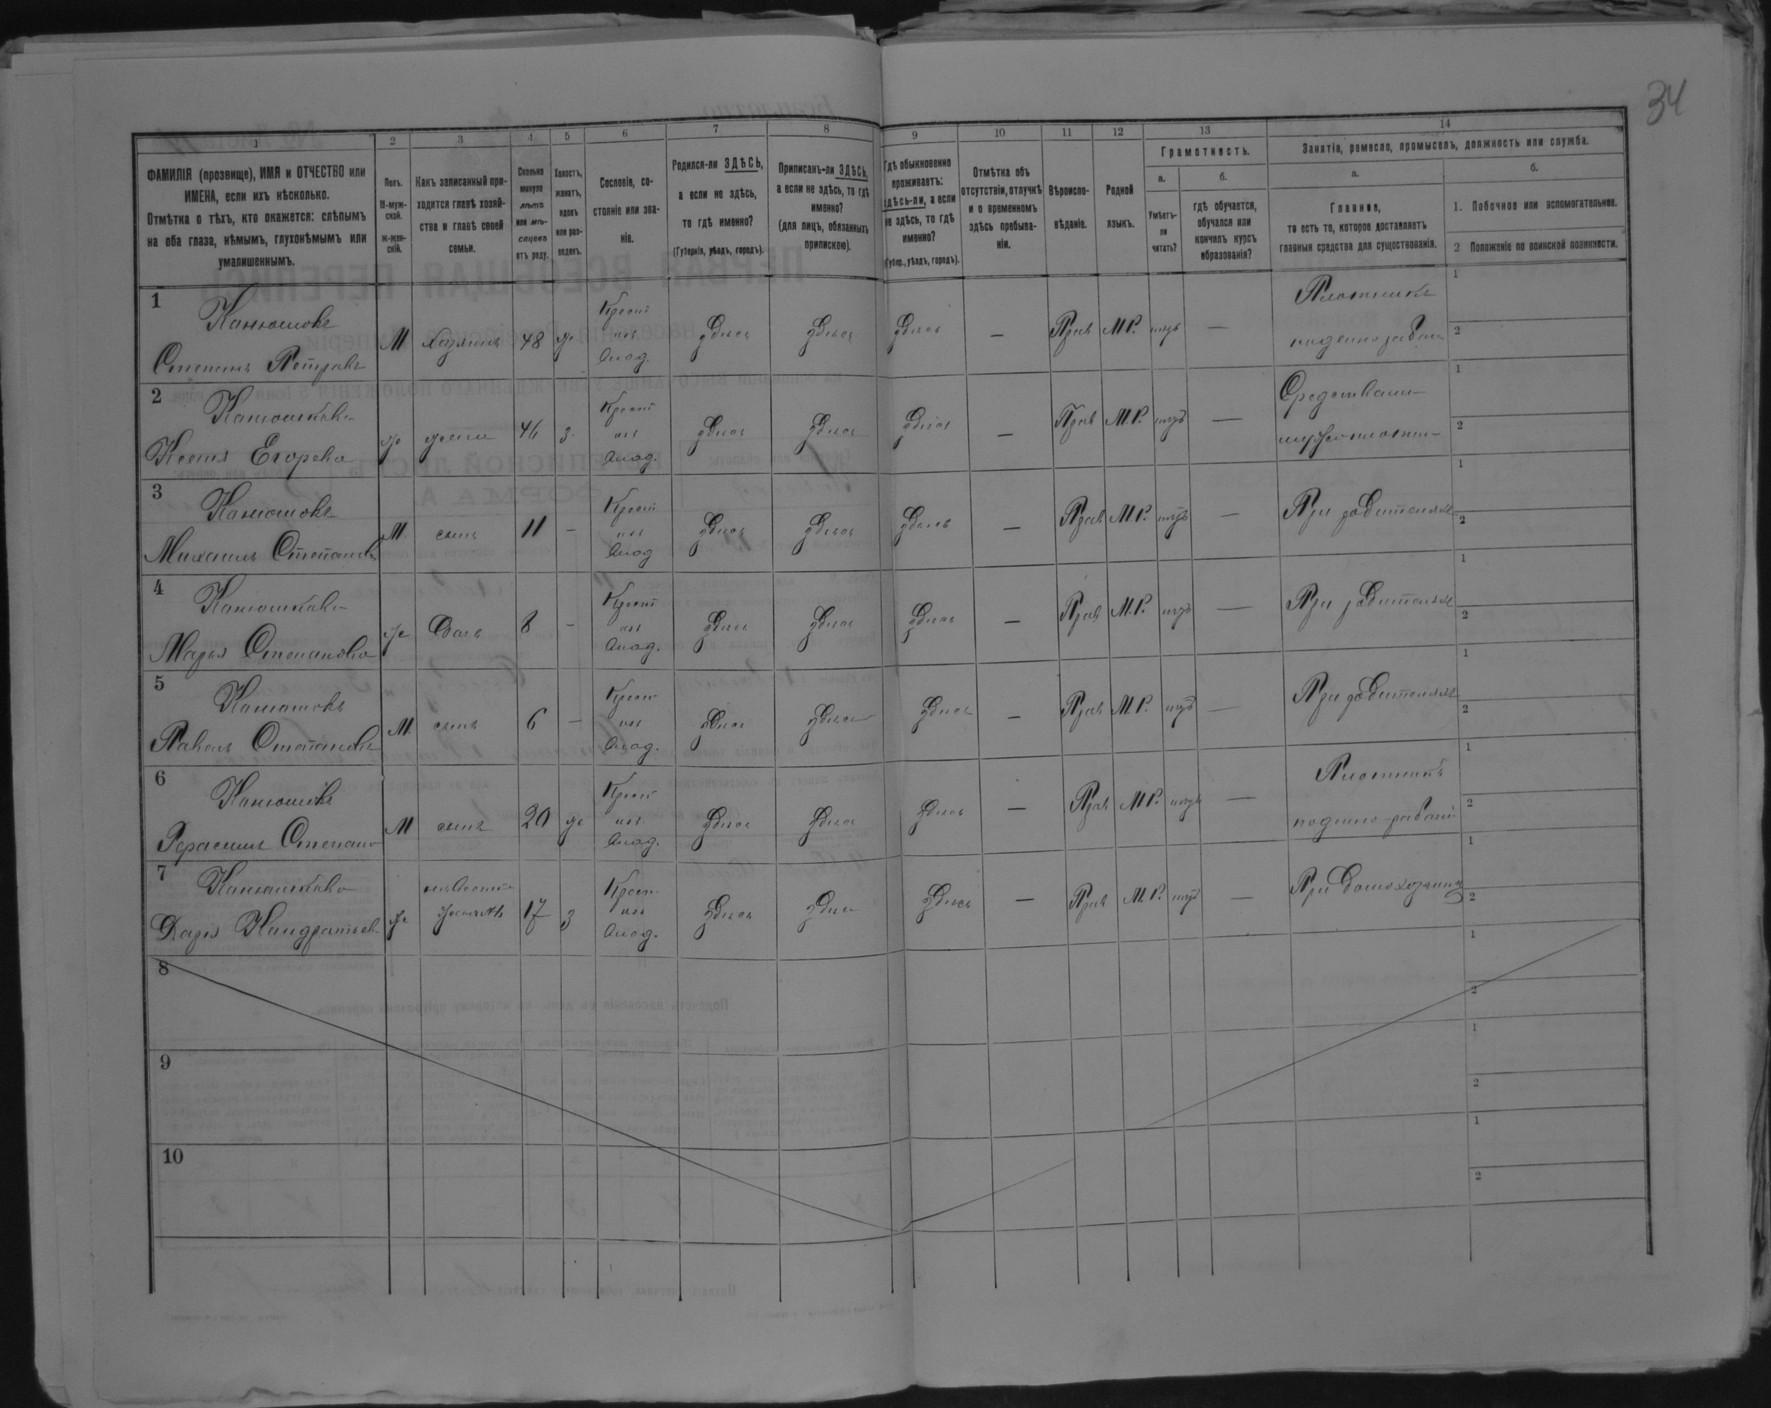 34
1 2 3 4 5 6 7 8 9 10 11 12 13 14
ФАМИЛІЯ (прозвище), ИМЯ и ОТЧЕСТВО или
ИМЕНА, если ихъ нѣсколько.
Отмѣтка о тѣхъ, кто окажется: слѣпымъ
на оба глаза, нѣмымъ, глухонѣмымъ или
умалишеннымъ.
Полъ.
М-муж-
ской.
Ж-жен-
скій.
Какъ записанный при-
ходится главѣ хозяй-
ства и главѣ своей
семьи.
Сколько
минуло
лѣтъ
или мѣ-
сяцевъ
отъ роду.
Холостъ,
женатъ,
вдовъ
или раз-
веденъ.
Сословіе, со-
стояніе или зва-
ніе.
Родился-ли ЗДѢСЬ,
а если не здѣсь,
то гдѣ именно?
(Губернія, уѣздъ, городъ).
Приписанъ-ли ЗДѢСЬ,
а если не здѣсь, то гдѣ
именно?
(для лицъ, обязанныхъ
припискою).
Гдѣ обыкновенно
проживаетъ:
здѣсь-ли, а если
не здѣсь, то гдѣ
именно?
(Губер., уѣздъ, городъ).
Отмѣтка объ
отсутствіи, отлучкѣ
и о временномъ
здѣсь пребыва-
ніи.
Вѣроиспо-
вѣданіе.
Родной
языкъ.
Грамотность.
а.
Умѣетъ-
ли
читать?
б.
гдѣ обучается,
обучался или
кончилъ курсъ
образованія?
Занятія, ремесло, промыселъ, должность или служба.
а.
Главное,
то есть то, которое доставляетъ
главныя средства для существованія.
б.
1. Побочное или вспомогательное.
2 Положеніе по воинской повинности.
1
Канюшовъ
Степанъ Петровъ
М хозяинъ 48 ж
Крест
изъ
влад.
здѣсь здѣсь здѣсь — Прав М.Р. нѣтъ —
Плотникъ
поденно
1
2
2
Канюшкова
Ксенія Егорова
ж жена 46 з
Крест
изъ
влад.
здѣсь здѣсь здѣсь — Прав М.Р. нѣтъ —
Средствами
1
2
3
Канюшовъ
Михаилъ Степановъ
М сынъ 11 —
Крест
изъ
влад
здѣсь здѣсь здѣсь — Прав М.Р. нѣтъ —
При родителяхъ
1
2
4
Канюшкова
Марья Степанова
ж дочь 8 —
Крест
изъ
влад.
здѣсь здѣсь здѣсь — Прав М.Р. нѣтъ —
При родителяхъ
1
2
5
Канюшовъ
Павелъ Степановъ
М сынъ 6 —
Крест
изъ
влад.
здѣсь здѣсь здѣсь — Прав М.Р. нѣтъ —
При родителяхъ
1
2
6
Канюшовъ
Герасимъ Степанов
М сынъ 20 ж
Крест
изъ
влад.
здѣсь здѣсь здѣсь — Прав М.Р. нѣтъ —
Плотникъ
поденно
1
2
7
Канюшкова
Дарія Кандратьев
ж невѣстка 17 з
Крест
изъ
влад.
здѣсь здѣсь здѣсь — Прав М.Р. нѣтъ —
При домохозяинѣ
1
2
8
1
2
9
1
2
10
1
2